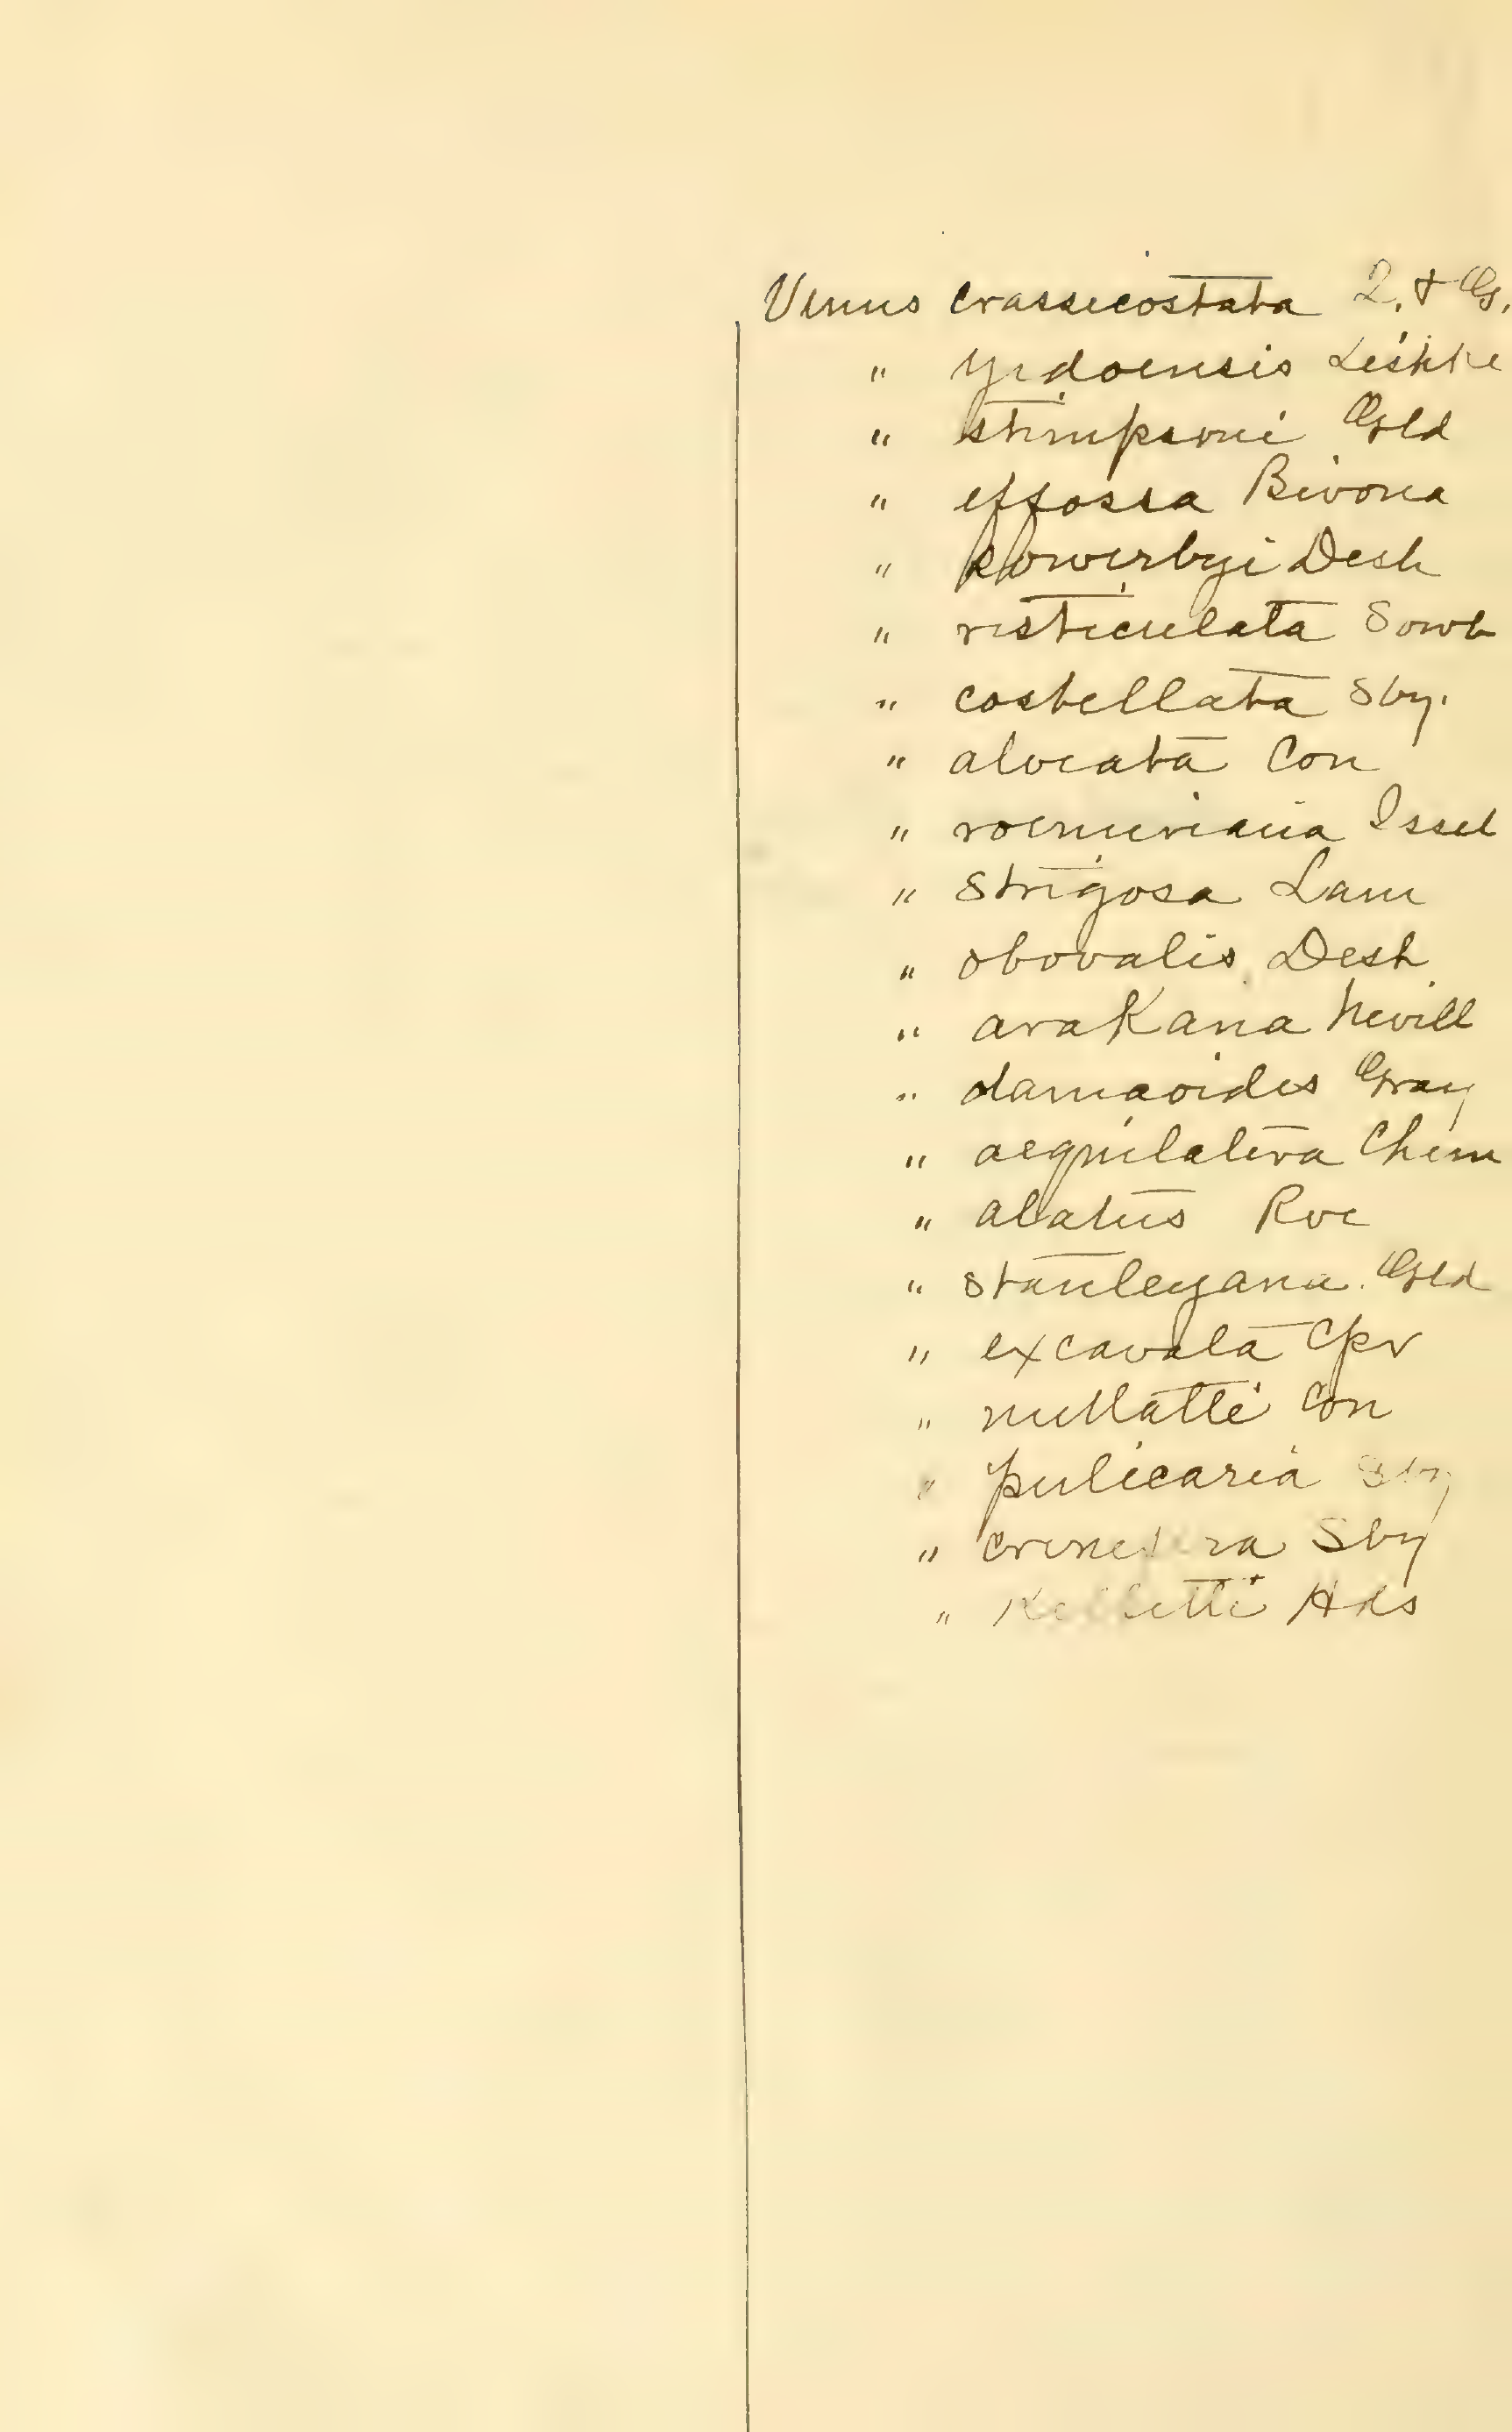 Venus crassicostata Q. & G.
" yedoensis Lischke
" stimpsoni Gld
" effossa Bivona
" sowerbyi Desh
" resticulata Sowb
" costellata Sby.
" alveata Con
" roemeriana Issel
" strigosa Lam
" obovalis Desh
" araKana Nevill
" damaoides Gray
" aequilatera Chem
" alatus Rve
" stanleyana. Gld
" excavata Cpr
" nuttalli Con
" pulicaria Sby
" Sby
" Kellettii Hds